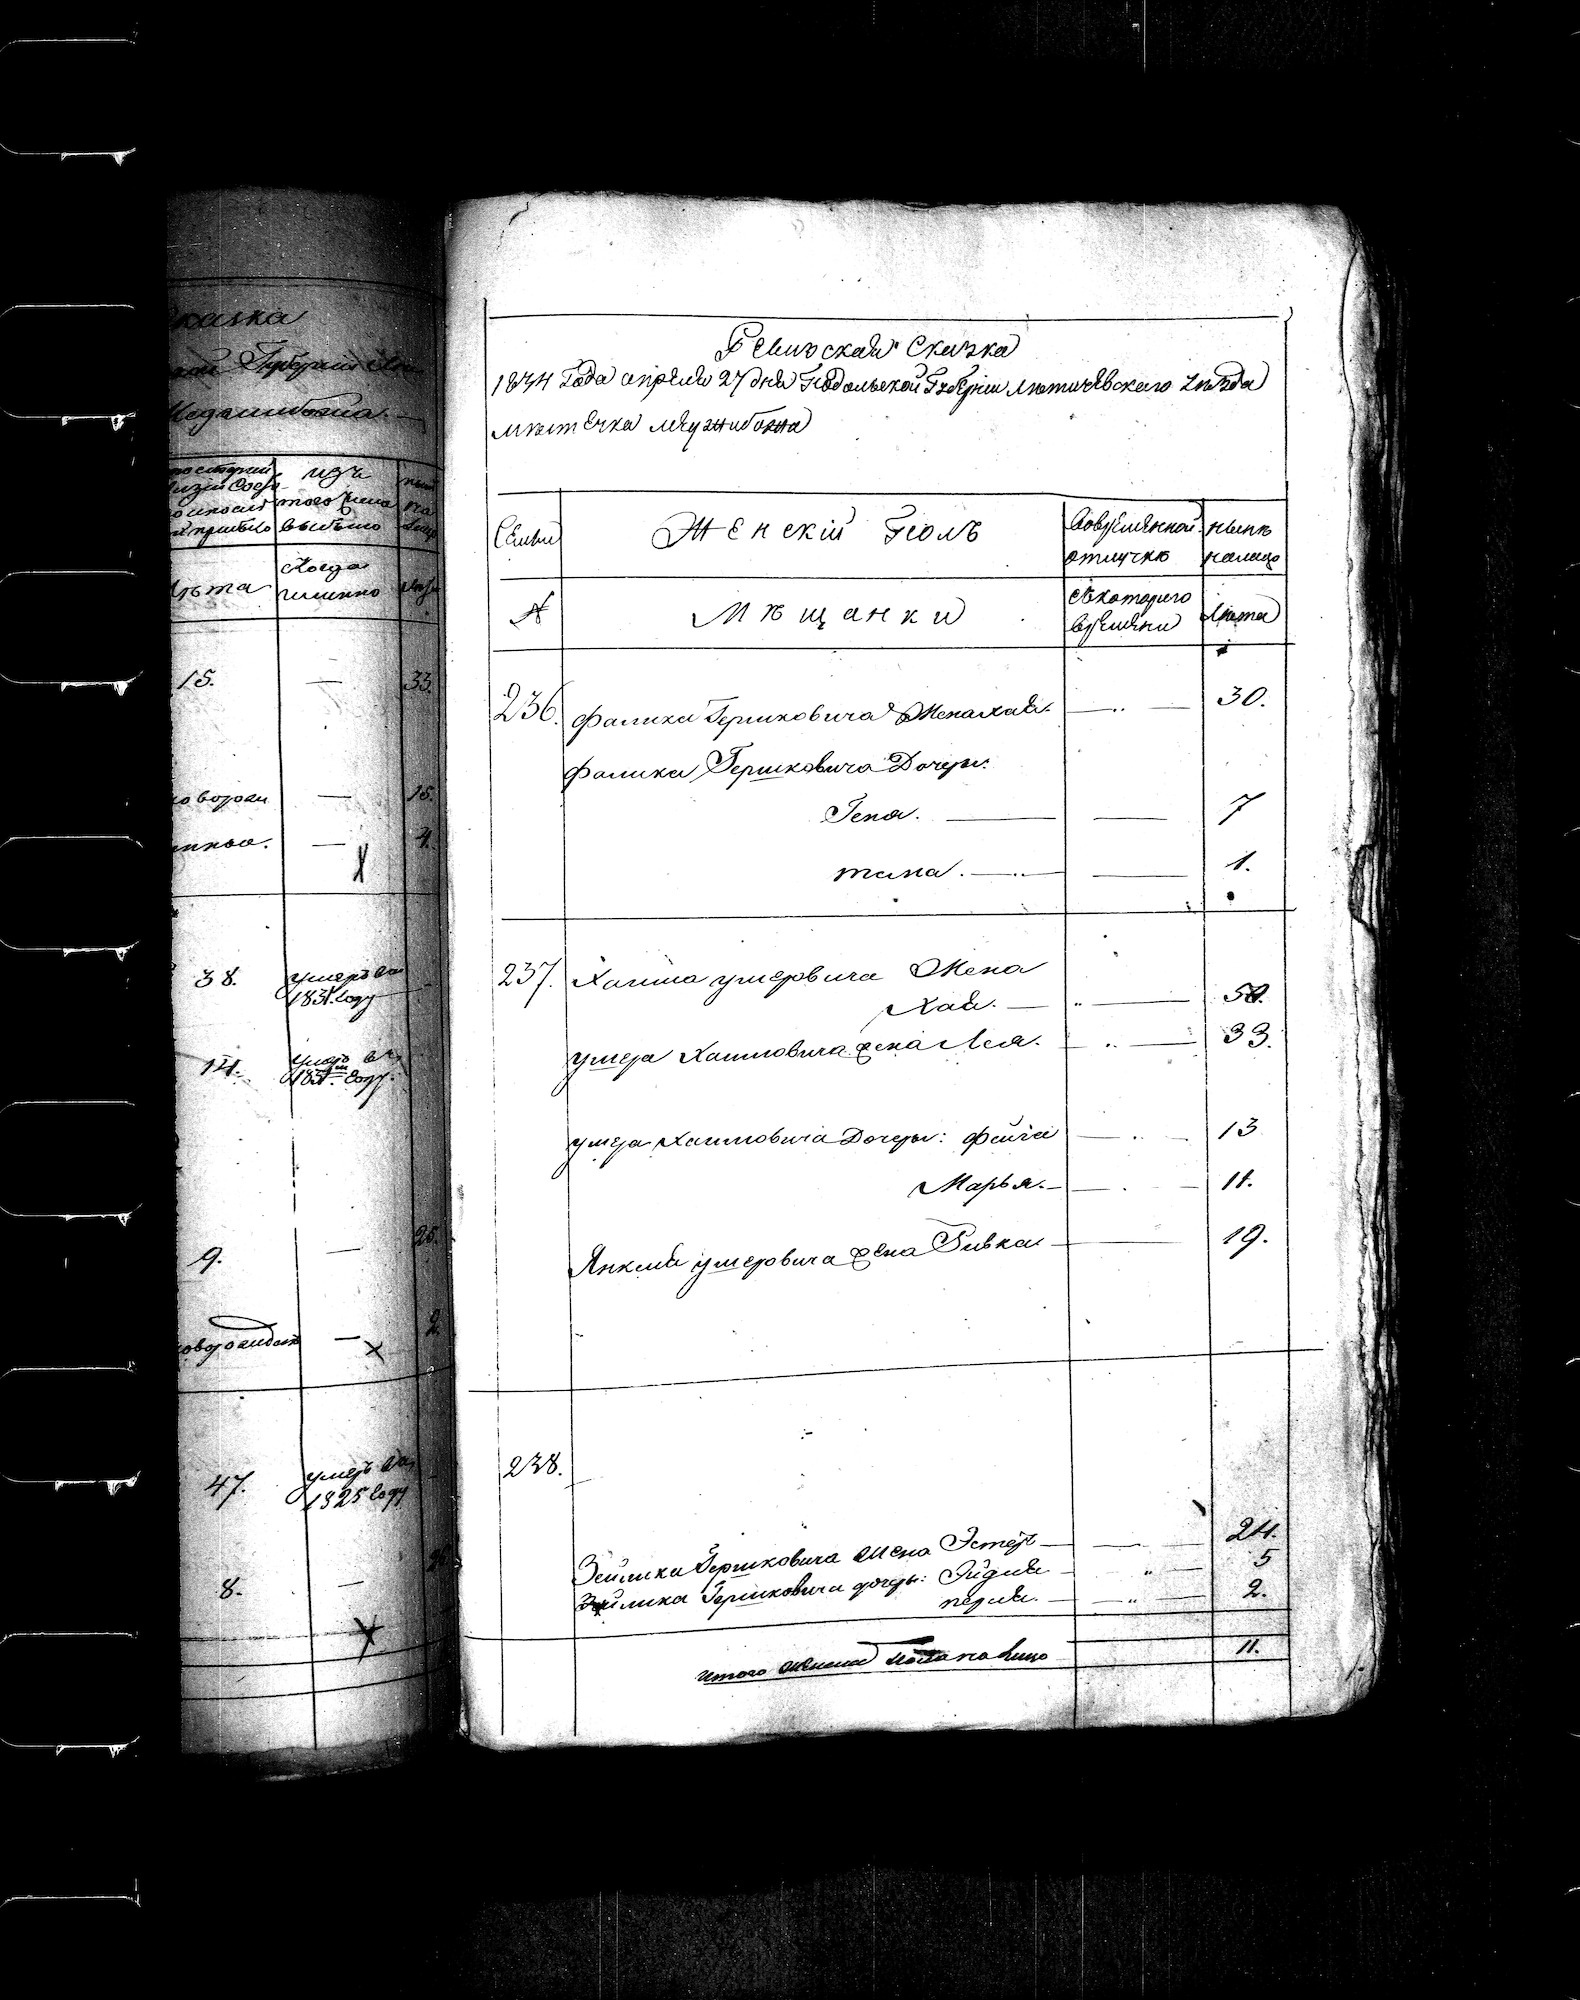 казка
Губернии
Меджибожа.
изъ
того числа
выбыло
Когда
лѣта именно
15. — 33.
новорож — 15.
— 4.
38. умеръ въ
1831. году
14. умеръ въ
1831. году.
9. — 25.
новорожден — 2.
47. умеръ въ
1825 году
8. —
Ревизская Сказка
1834 Года апреля 27 дня Подольской Губерніи Летичевского уѣзда
мѣстечка меджибожа
Семьи Женскій Полъ Вовременной отлучкѣ нынѣ налицо
№ Мѣщанки Скоторого времени Лѣта
236. Фалика Гершковича Жена Хая. — 30.
Фалика Гершковича Дочери:
Гена. — — 7
тина. — — 1.
237. Хаима умеровича Жена
Хая. — — 50.
умера Хаимовича жена Лея. — 33.
умера Хаимовича Дочери: Фейга — 13
Марья. — — 11.
Янкеля умеровича жена Ривка — — 19.
238.
Зейлика Гершковича жена Эстеръ — — 24.
Зейлика Гершковича дочери: Эйдля — — 5
перля. — — 2.
итого женска пола на лицо 11.